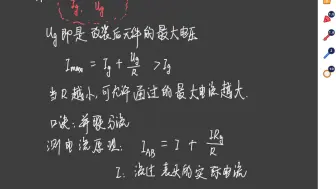 Ig Ug
Ug即是改装后元件的最大电压
Imax = Ig + Ug/R > Ig
当R越小,可允许通过的最大电流越大.
口诀:并联分流
测电流原理: IAB = I + IRg/R
I: 流过表头的实际电流